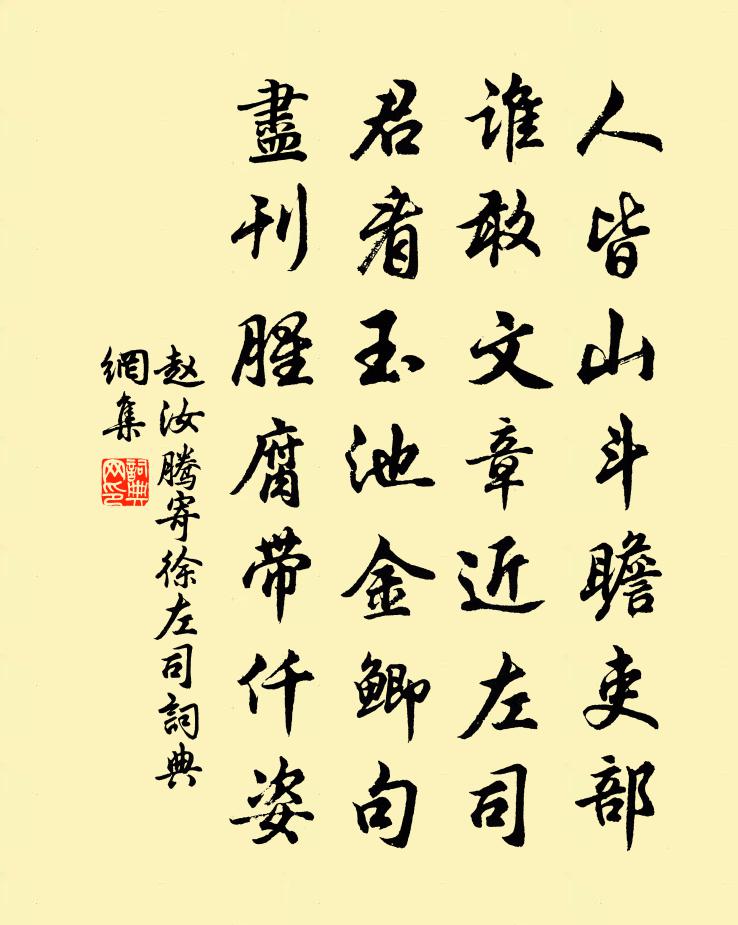 人皆山斗瞻吏部
谁敢文章近左司
君看玉池金鲫句
盡刊腥腐带仟姿
赵汝腾寄徐左司詞典
網集
詞典
网印